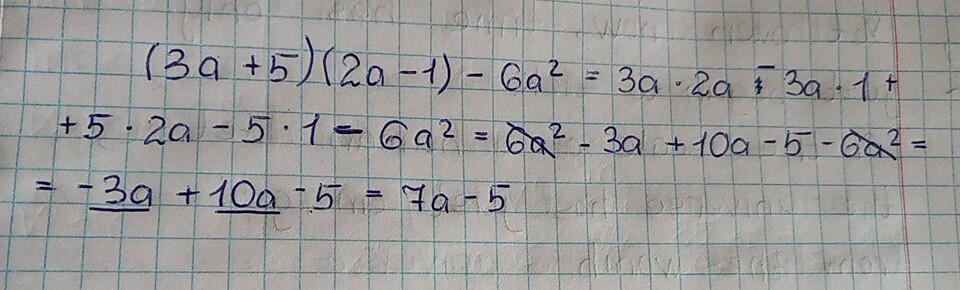 (3a + 5)(2a - 1) - 6a² = 3a · 2a - 3a · 1 +
+ 5 · 2a - 5 · 1 - 6a² = 6a² - 3a + 10a - 5 - 6a² =
= -3a + 10a - 5 = 7a - 5